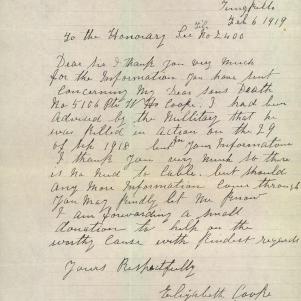 Feb 6 1919
To the Honorary Sec No 2400
Dear Sir I thank you very much
for the Information you have sent
concerning My Dear sons Death
No 5106 Pte W Cooke. I had been
advised by the Millitary that he
was Killed in Action on the 29
of Sep 1918 Your Informatione
I thank you very much so there
is no need to Cable. but should
any More Information come through
You May Kindly let Me know
I am forwarding a small
donation to help on the
worthy Cause with Kindest regards
Yours Respectfully
Elizabeth Cooke